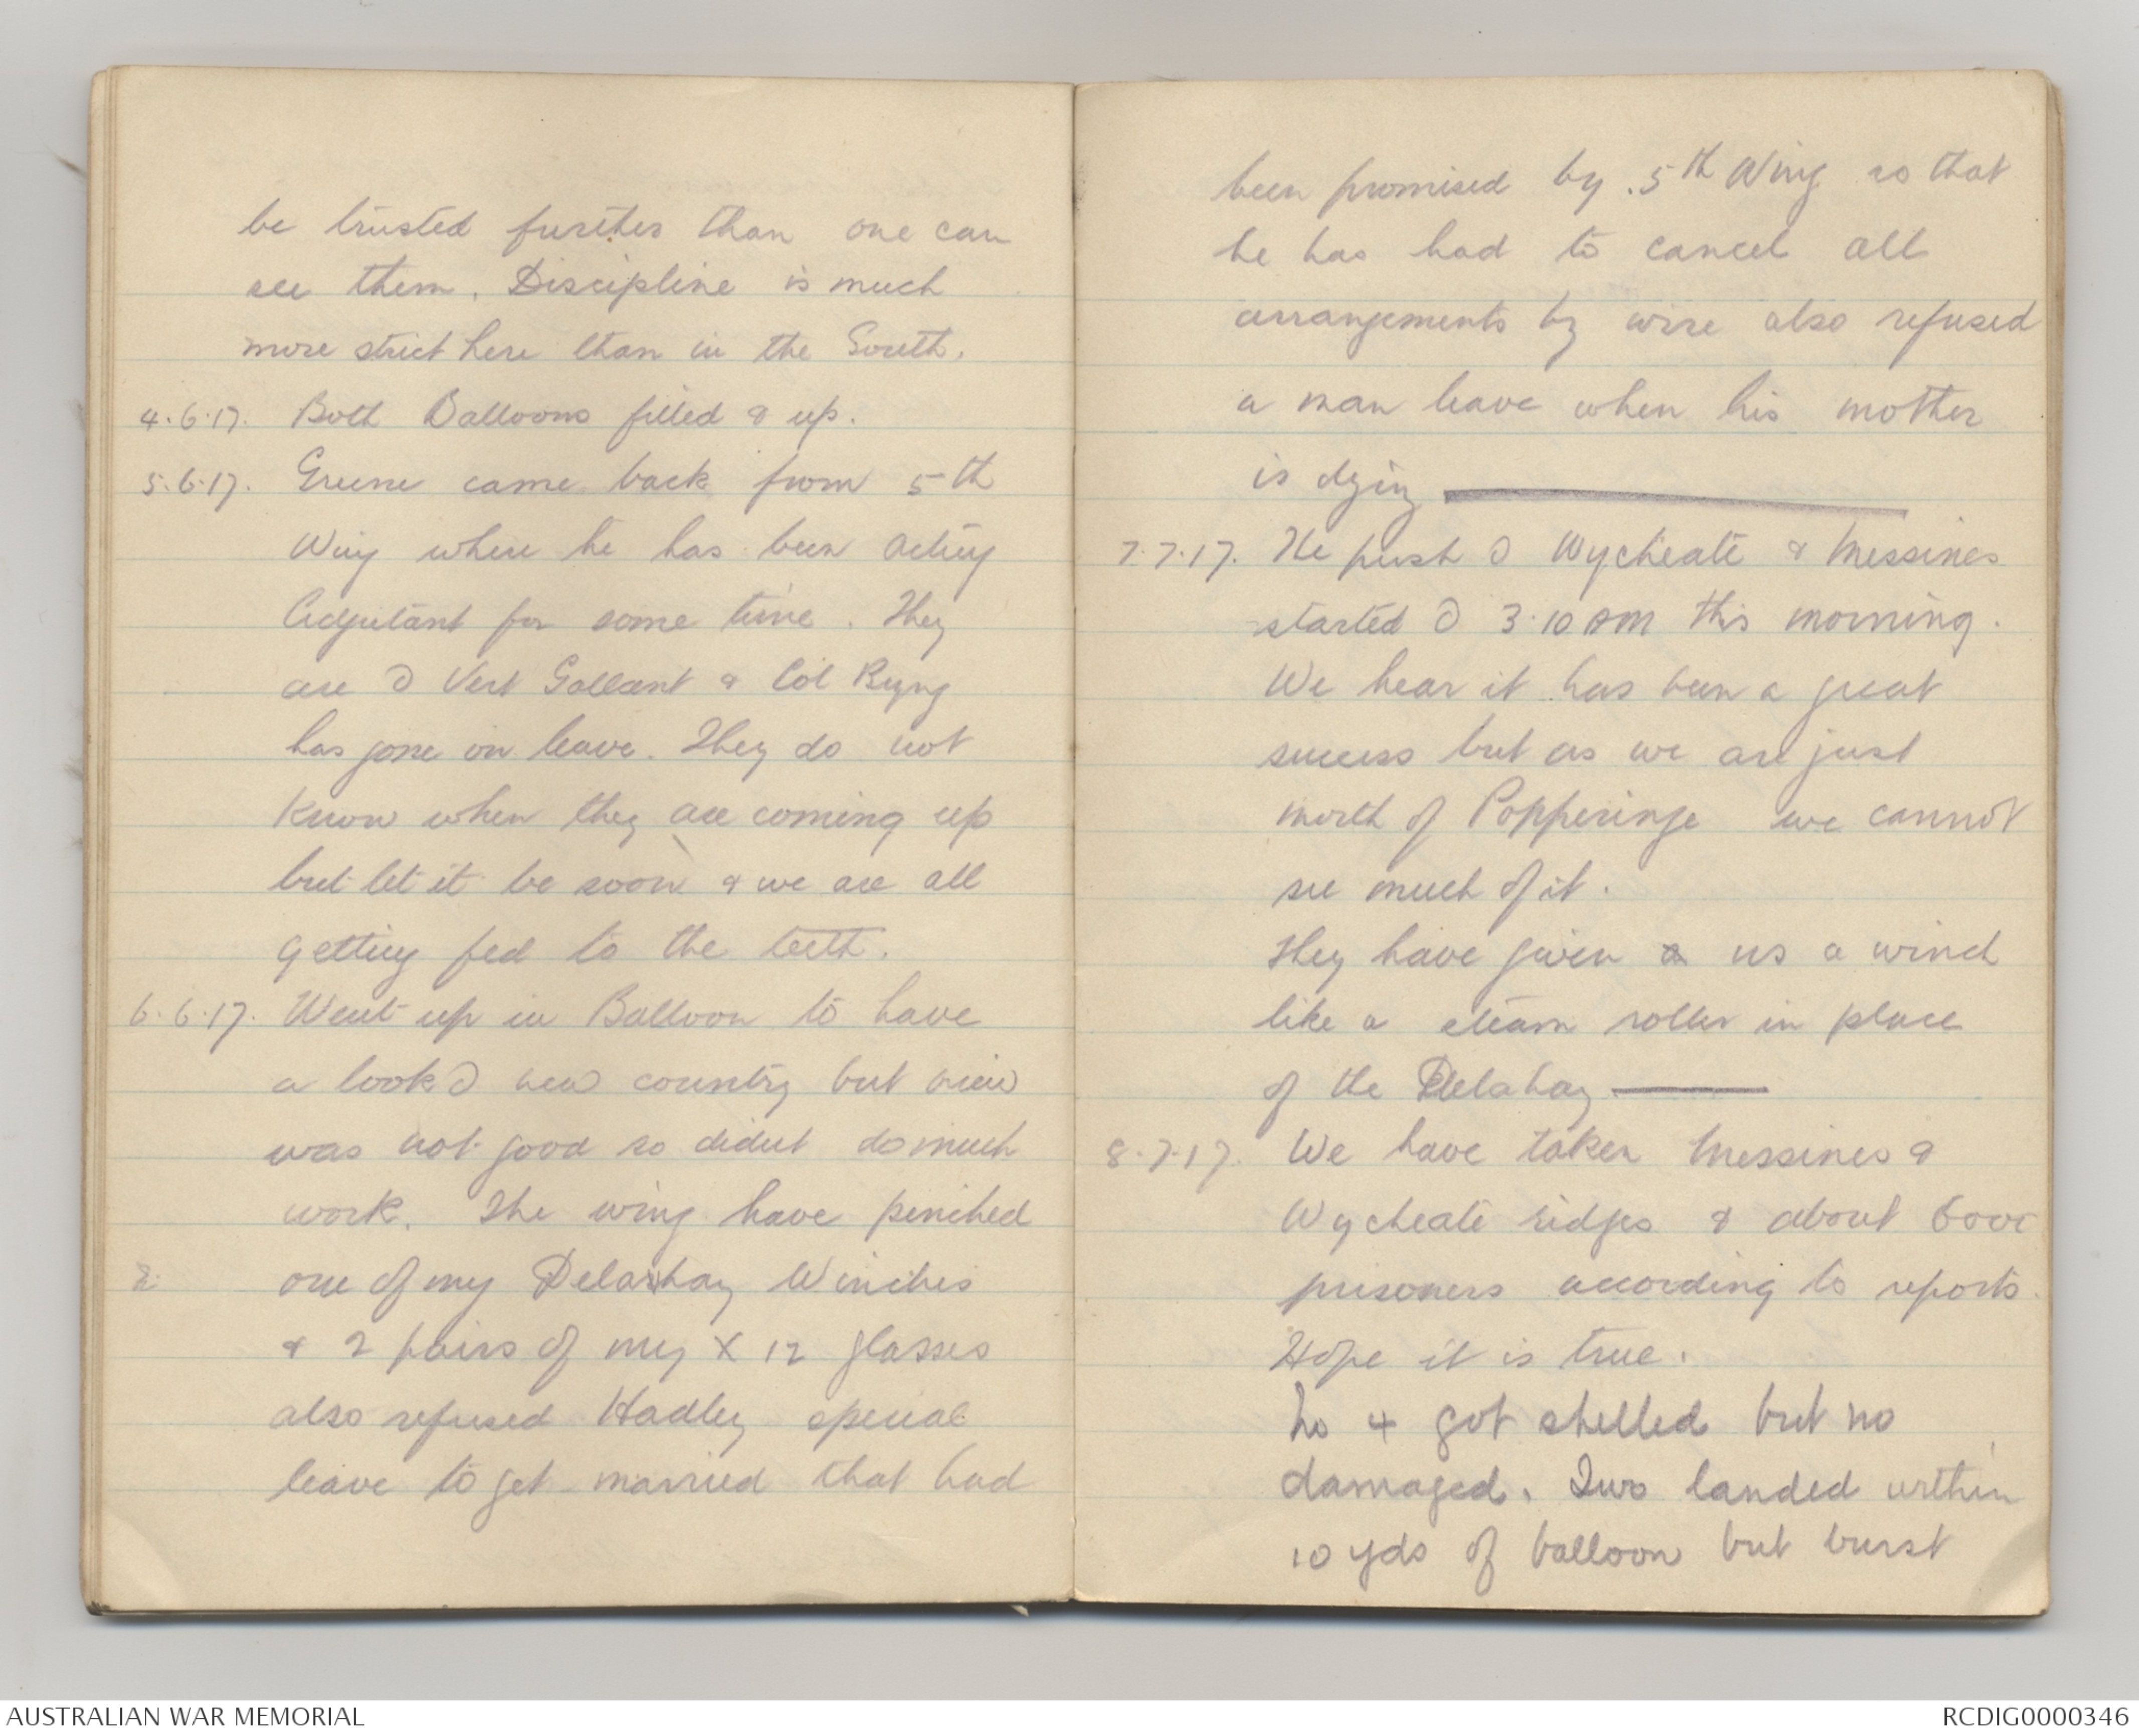 be trusted further than one can
see them. Discipline is much
more strict here than in the South.
4.6.17. Both Balloons filled & up.
5.6.17. Greene came back from 5th
Wing where he has been acting
Adjutant for some time. They
are @ Vert Gallant & Col Byng
has gone on leave. They do not
know when they are coming up
but let it be soon & we are all
getting fed to the teeth.
6.6.17. Went up in Balloon to have
a look @ new country but view
was not good so didnt do much
work. The wing have pinched
one of my Delahay Winches
& 2 pairs of my X 12 glasses
also refused Hadley special
leave to get married that had
been promised by 5th Wing so that
he has had to cancel all
arrangements by wire also refused
a man leave when his mother
is dying
7.7.17. The push @ Wycheate & Messines
started @ 3.10 AM this morning.
We hear it has been a great
success but as we are just
north of Popperinge we cannot
see much of it.
They have given us a winch
like a steam roller in place
of the Delahay
8.7.17. We have taken Messines &
Wycheate ridges & about 6000
prisoners according to reports.
Hope it is true.
No 4 got shelled but no
damaged. Two landed within
10 yds of balloon but burst
AUSTRALIAN WAR MEMORIAL
RCDIG0000346